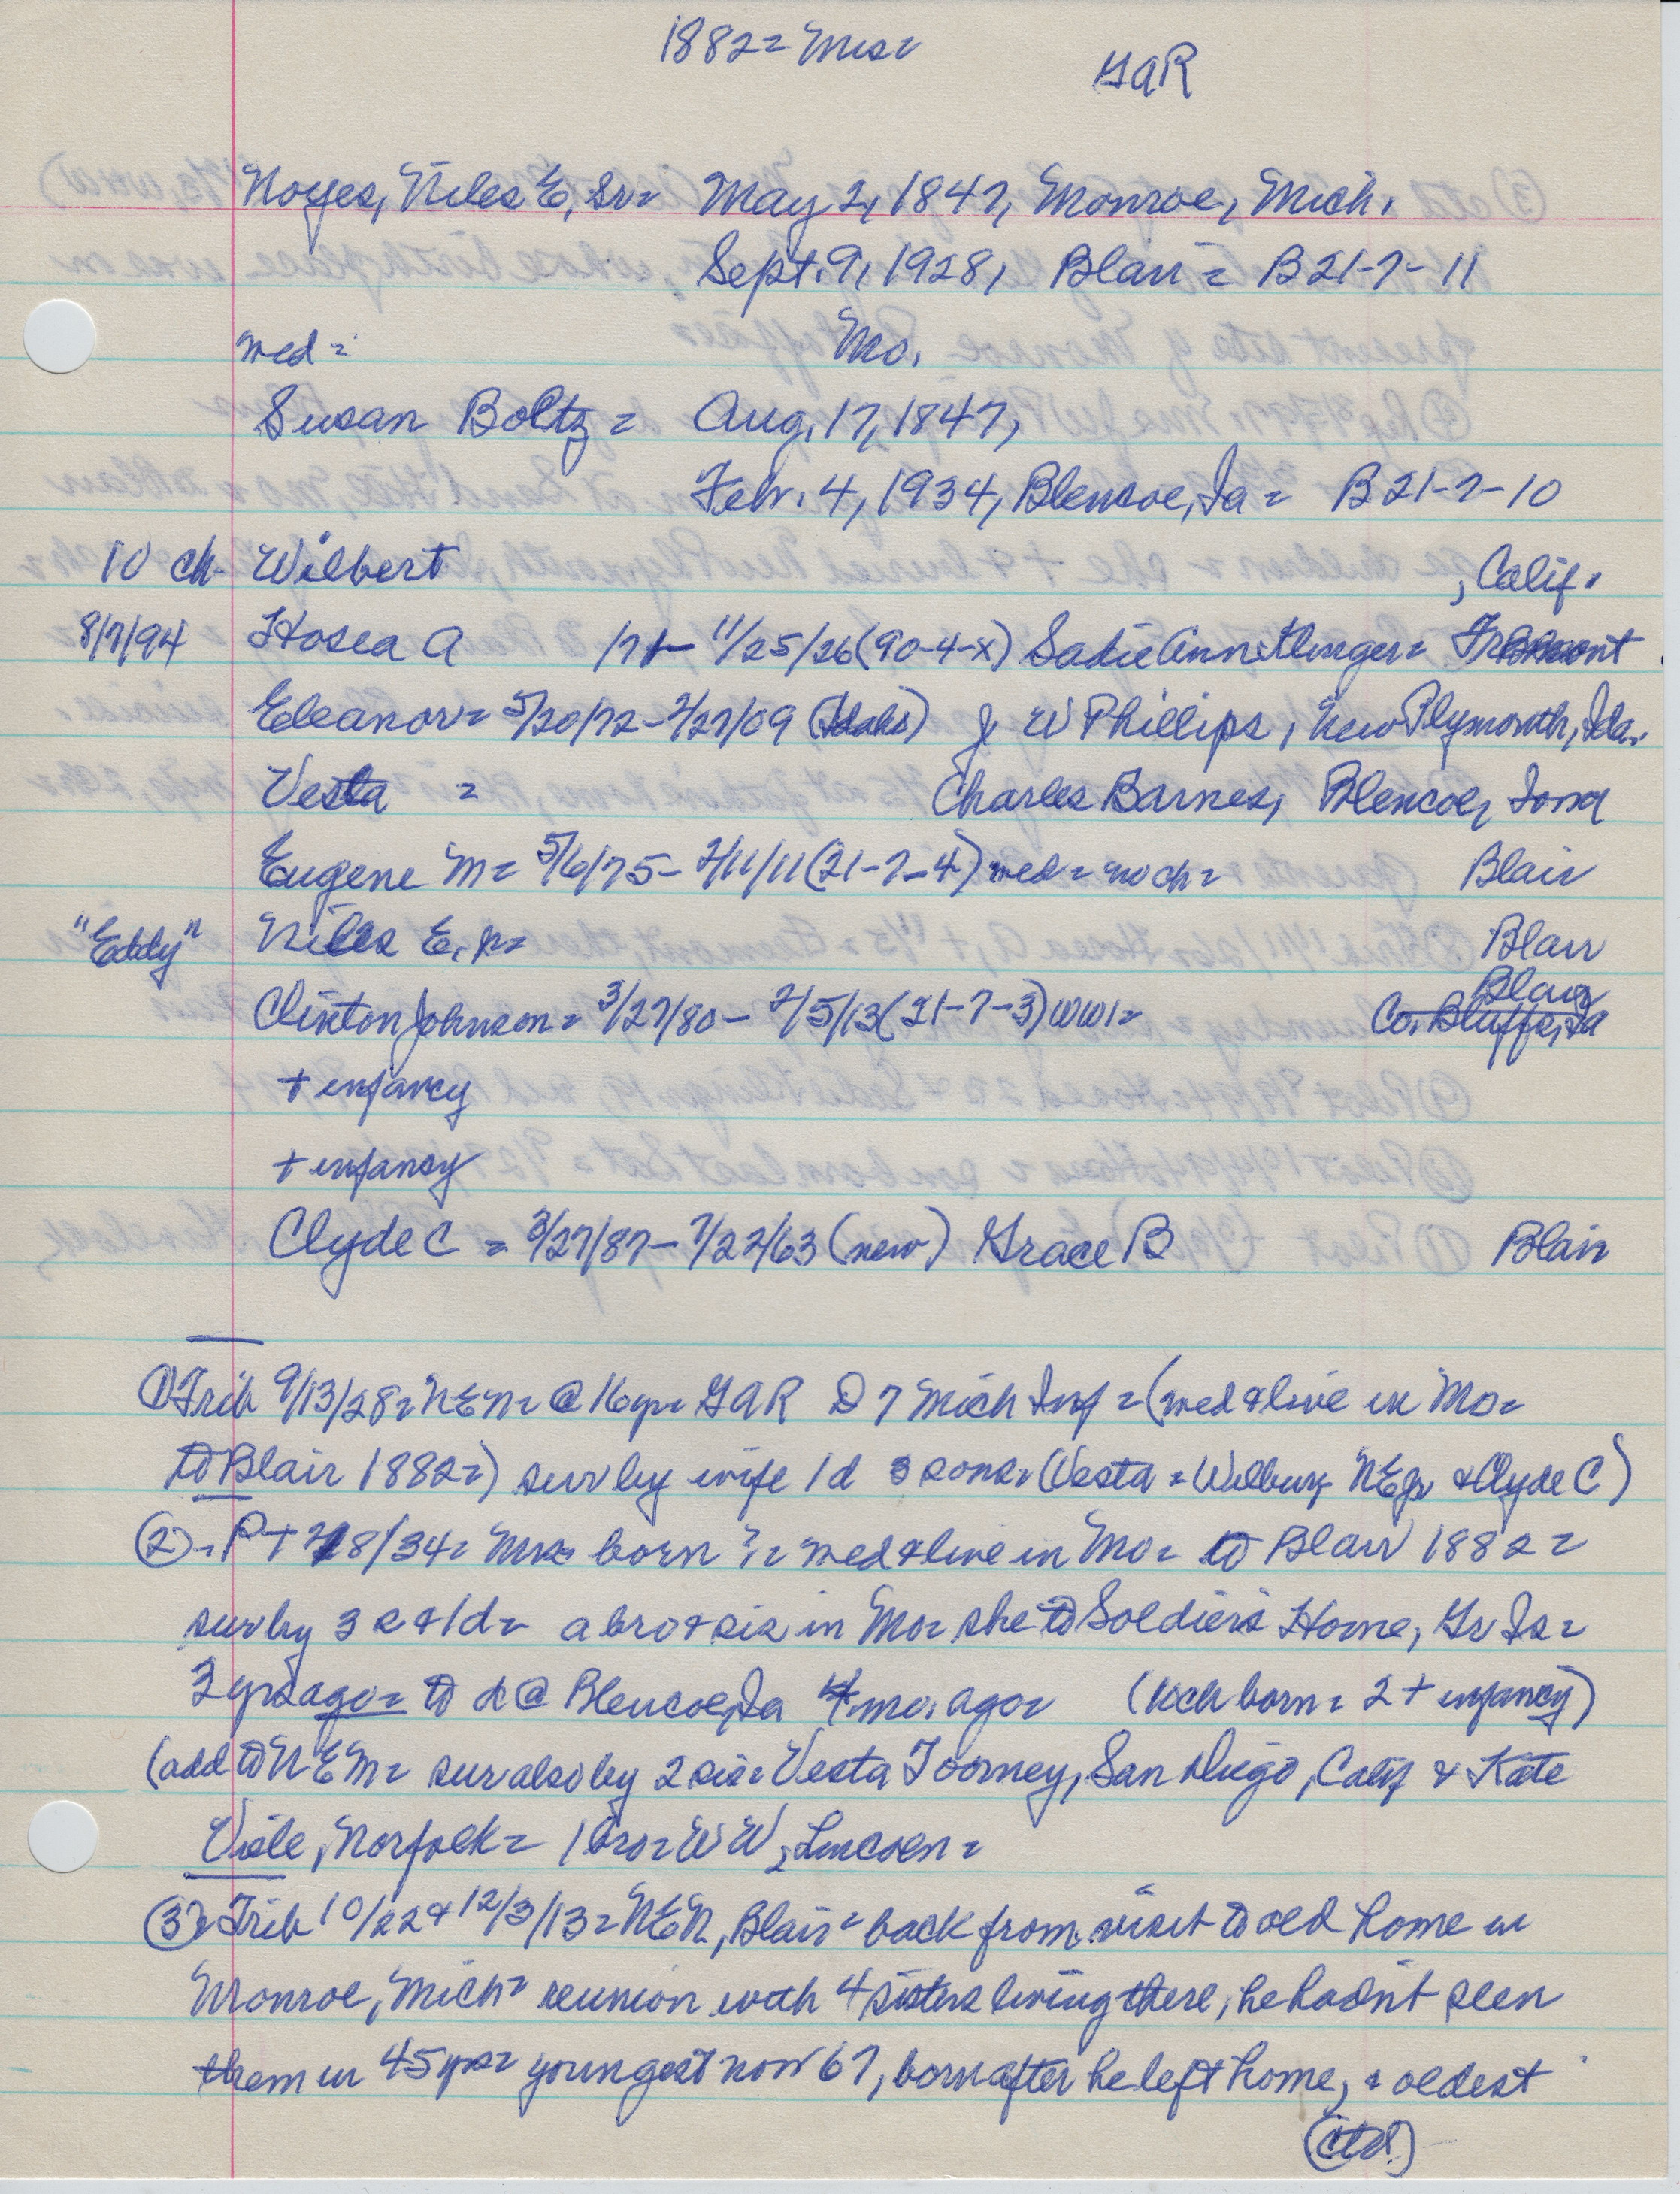 1882 = Miss =
GAR
Noyes, Niles E, Sr = May 2, 1847, Monroe, Mich.
Sept. 9, 1928, Blair = B 21-7-11
med = Mo.
Susan Boltz = Aug. 17, 1847,
Febr. 4, 1934, Blencoe, Ia = B 21-7-10
10 ch - Wilbert , Calif.
8/7/94 Hosea A /71 - 11/25/26 (90-4-X) Sadie Ann = Fremont
Eleanor = 5/20/72 - 2/27/09 (Idaho) J W Phillips, New Plymouth, Ida.
Vesta = Charles Barnes, Blencoe, Iowa
Eugene M = 5/6/75 - 2/11/11 (21-7-4) med = no ch = Blair
"Eddy" Niles E, jr = Blair
Blair
Clinton Johnson = 3/27/80 - 2/5/13 (21-7-3) WW1 = Co. Bluffs, Ia
+ infancy
+ infancy
Clyde C = 3/27/87 - 7/22/63 (new) Grace B Blair
① Trib 9/13/28 = NEN = @ 16 yr = GAR D 7 Mich Inf = (med & live in Mo =
to Blair 1882 =) sur by wife 1 d 3 sons = (Vesta = Wilbur, NE jr & Clyde C)
② = PT 2/8/34 = Mrs born ? = med & live in Mo = to Blair 1882 =
sur by 3 s & 1 d = a bro & sis in Mo = she to Soldier's Home, Gr Is =
3 yrs ago = to d @ Blencoe, Ia 4 mo. ago = (10 ch born = 2 + infancy)
(add to NEN = sur also by 2 sis = Vesta Toomey, San Diego, Calif & Kate
Viele, Norfolk = 1 bro = W W, Lincoln =
③ = Trib 10/22 & 12/3/13 = NEN, Blair = back from visit to old home in
Monroe, Mich = reunion with 4 sisters living there, he hadn't seen
them in 45 yrs = youngest now 67, born after he left home, & oldest
(ctd.)